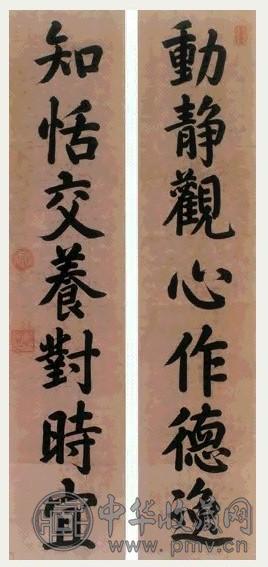 動靜觀心作德逸
知恬交養對時宜
中华收藏网
www.pmv.cn